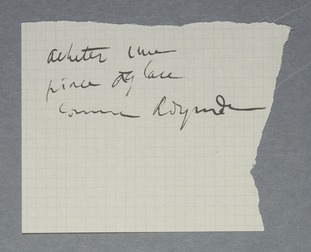 acheter une
pince à glace
comme